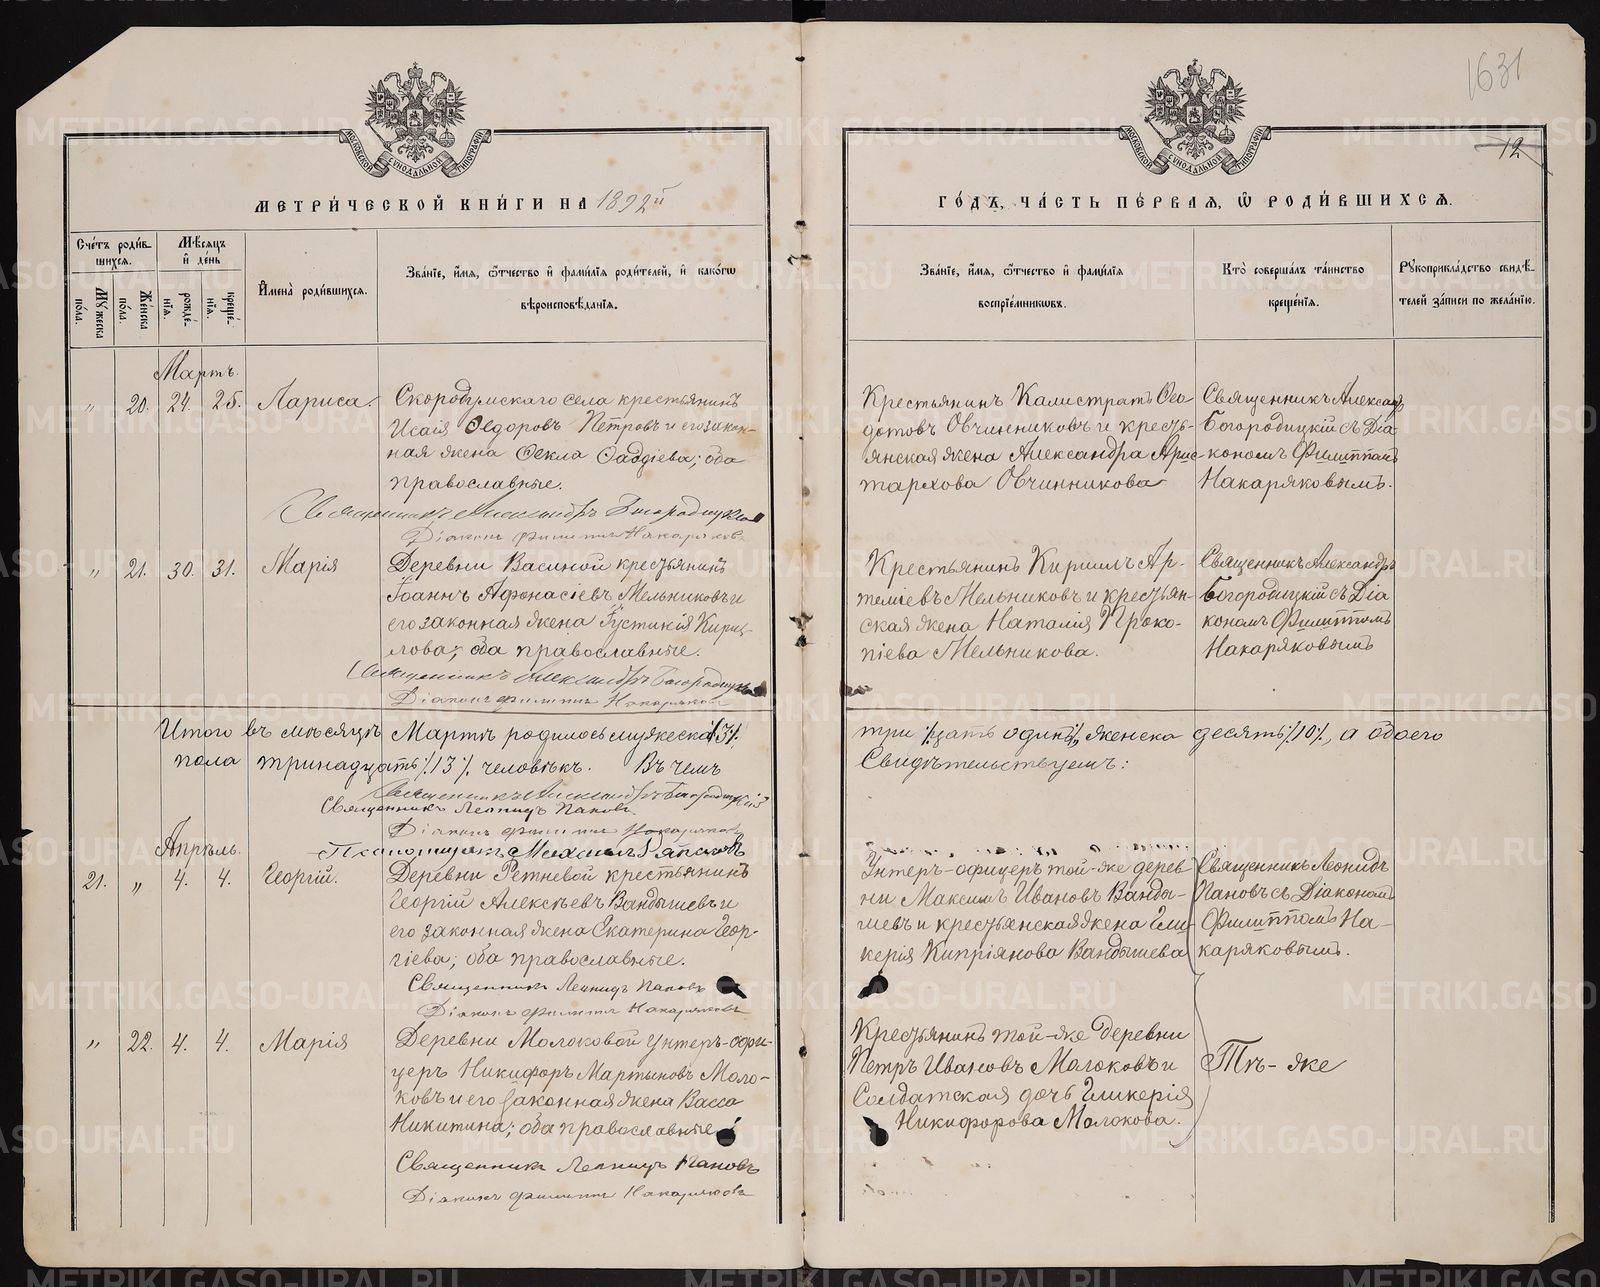 1631
12
МЕТРИ́ЧЕСКОЙ КНИ́ГИ НА 1892й
ГО́ДЪ, ЧА́СТЬ ПЕ́РВАЯ, Ѡ РОДИ́ВШИХСЯ.
Сче́тъ роди́в-
шихся.
Му́жеска по́ла.
Же́нска по́ла.
Мѣ́сяцъ
и де́нь
рожде́-
нїя.
креще́-
нїя.
Имена̀ роди́вшихся.
Зва́нїе, и́мя, ѻ҆́тчество и фами́лїя роди́телей, и како́гѡ
вѣроисповѣ́данїя.
Зва́нїе, и́мя, ѻ҆́тчество и фами́лїя
воспрїе́мникѡвъ.
Кто̀ соверша́лъ та́инство
креще́нїя.
Рукоприкла́дство свидѣ́-
телей за́писи по жела́нїю.
Мартъ.
" 20. 24. 25. Лариса.
Скородумскаго села крестьянинъ
Исаія Ѳедоровъ Петровъ и его закон-
ная жена Ѳекла Ѳаддіева; оба
православные.
Священникъ Александръ Богородицкій
Діаконъ Филиппъ Накаряковъ
Крестьянинъ Калистратъ Ѳео-
дотовъ Овчинниковъ и кресть-
янская жена Александра Арис-
тархова Овчинникова
Священникъ Александръ
Богородицкій съ Діа-
кономъ Филиппомъ
Накаряковымъ.
" 21. 30. 31. Марія
Деревни Васиной крестьянинъ
Іоаннъ Афонасіевъ Мельниковъ и
его законная жена Іустинія Кирил-
лова; оба православные.
Священникъ Александръ Богородицкій
Діаконъ Филиппъ Накаряковъ
Крестьянинъ Кириллъ Ар-
теміевъ Мельниковъ и крестьян-
ская жена Наталія Проко-
піева Мельникова.
Священникъ Александръ
Богородицкій съ Діа
кономъ Филиппомъ
Накаряковымъ
Итого въ мѣсяцѣ Мартѣ родилось мужеска /3/.
три /.цать одинъ/., женска десять /.10/., а обоего
пола тринадцать /.13/. человѣкъ. Въ чемъ
Свидѣтельствуемъ:
Священникъ Александръ Богородицкій
Священникъ Леонидъ Пановъ
Діаконъ Филиппъ Накаряковъ
Псаломщикъ Михаилъ
Апрѣль.
21. " 4. 4. Георгій.
Деревни Ретневой крестьянинъ
Георгій Алексѣевъ Вандышевъ и
его законная жена Екатерина Геор-
гіева; оба православные.
Священникъ Леонидъ Пановъ
Діаконъ Филиппъ Накаряковъ
Унтеръ-офицеръ той-же дерев
ни Максимъ Ивановъ Ванды-
шевъ и крестьянская жена Гли-
керія Кипріянова Вандышева
Священникъ Леонидъ
Пановъ съ Діакономъ
Филиппомъ На-
каряковымъ.
" 22. 4. 4. Марія
Деревни Молоковой унтеръ-офи-
церъ Никифоръ Мартыновъ Моло-
ковъ и его законная жена Васса
Никитина; оба православные
Священникъ Леонидъ Пановъ
Діаконъ Филиппъ Накаряковъ
Крестьянинъ той-же деревни
Петръ Ивановъ Молоковъ и
Солдатская дочь Гликерія
Никифорова Молокова.
Тѣ-же
METRIKI.GASO-URAL.RU